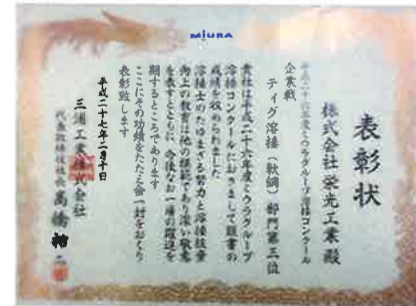 miura
表彰状
平成二十六年度ミウラグループ溶接コンクール
株式会社栄光工業殿
企業戦
ティグ溶接（軟鋼）部門第三位
貴社は平成二十六年度ミウラグループ
溶接コンクールにおきまして頭書の
成績を収められました
溶接士のたゆまざる努力と溶接技量
向上の教育は他の模範であり深い敬意
を表すとともに今後なお一層の躍進を
期するところであります
ここにその功績をたたえ金一封をおくり
表彰致します
平成二十七年二月二十日
三浦工業株式会社
代表取締役社長 高橋祐二